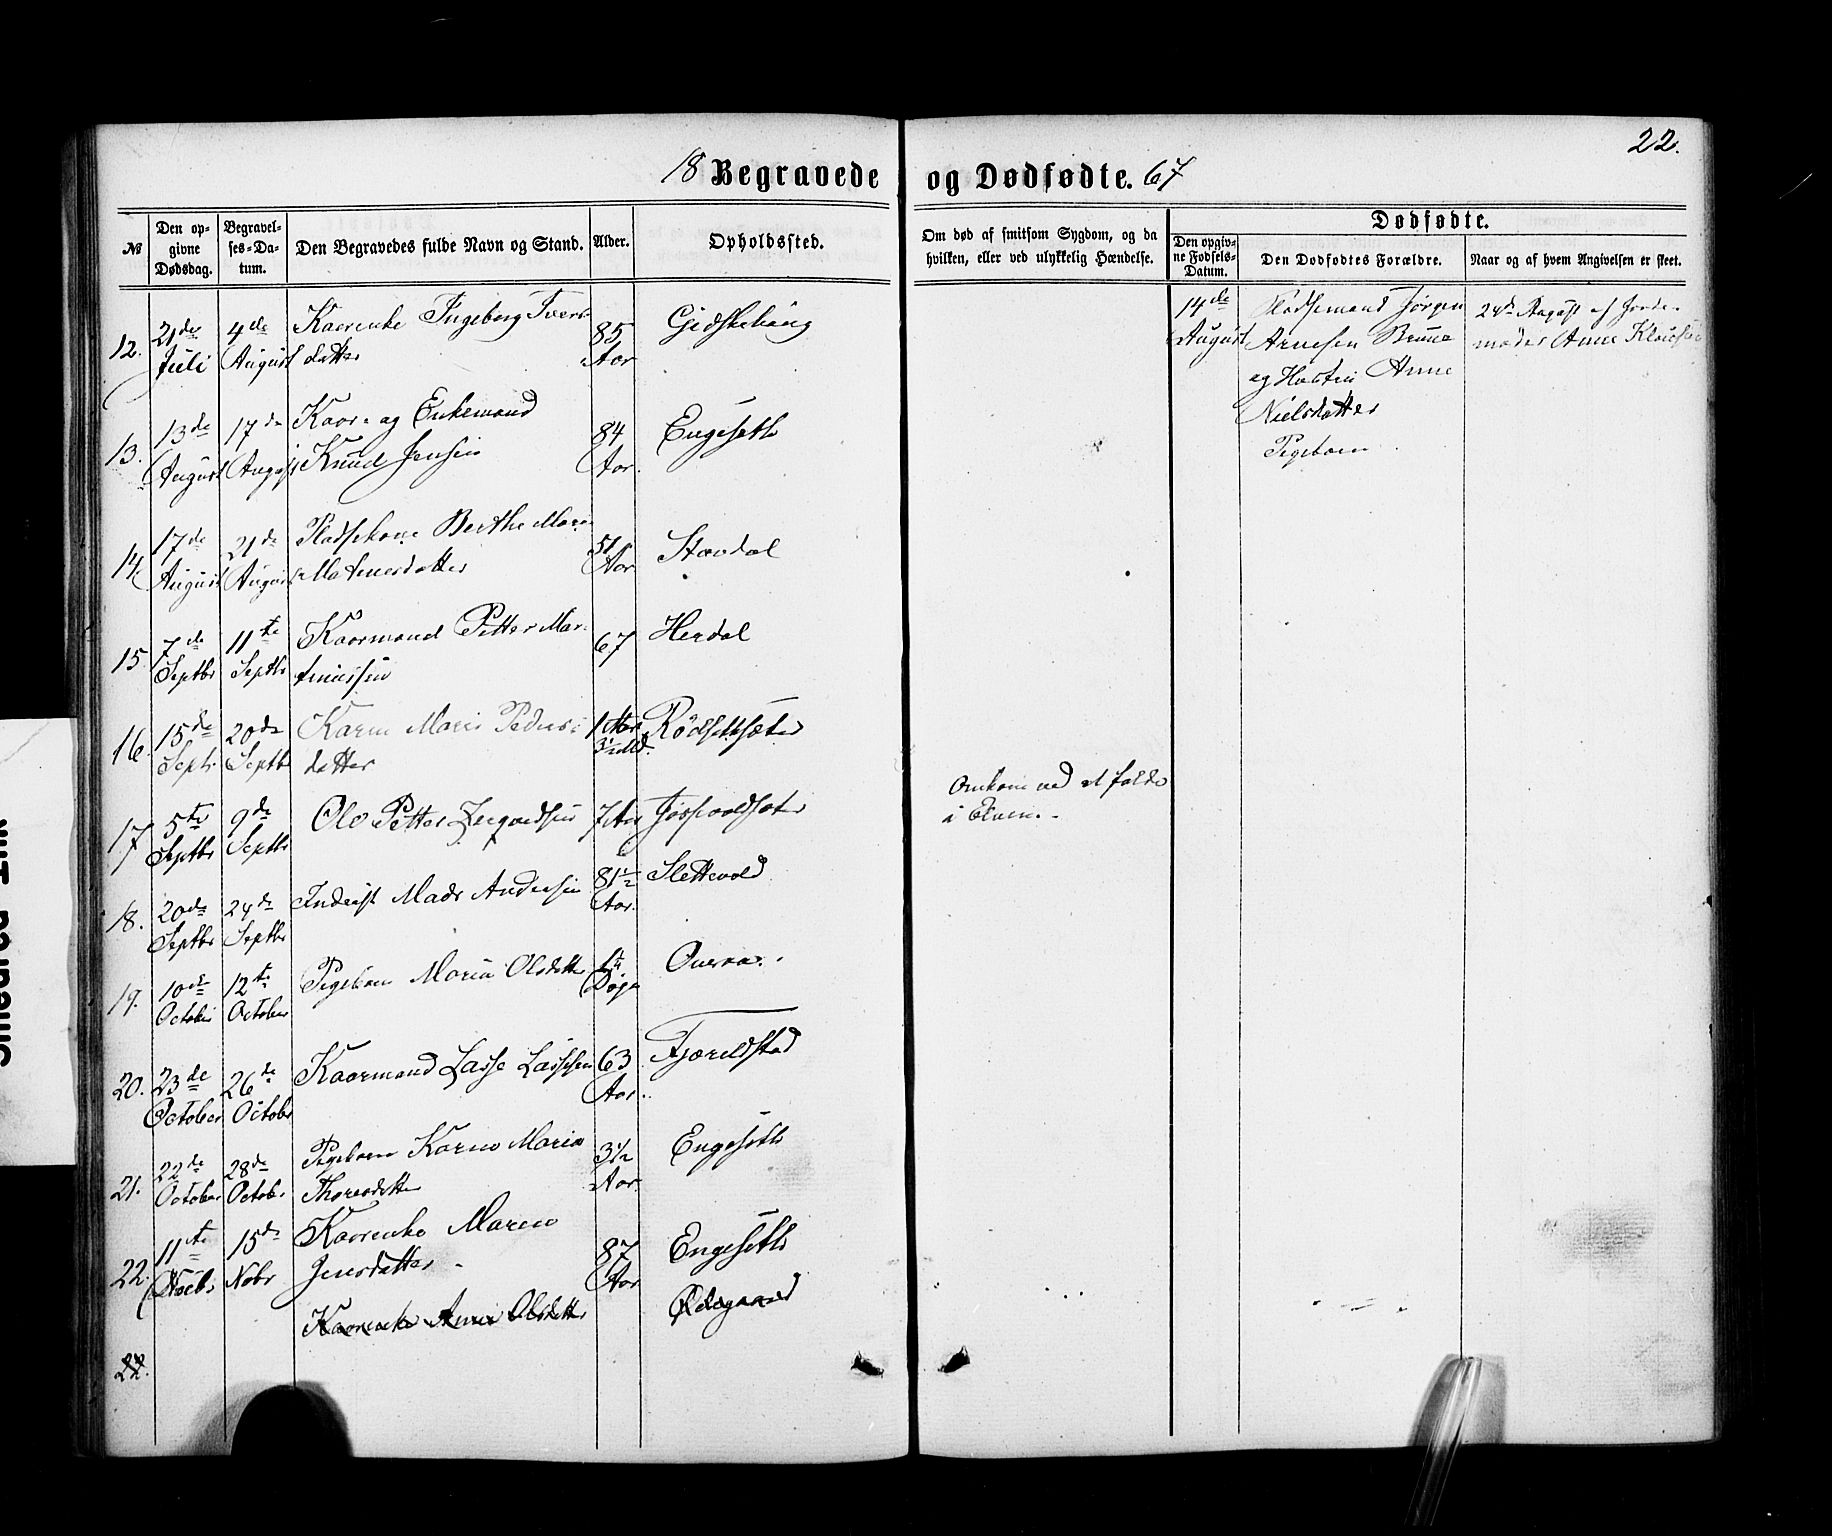 22.
18 Begravede og Dødfødte. 67
№
Den opgivne Dødsdag.
Begravelses-Datum.
Den Begravedes fulde Navn og Stand.
Alder.
Opholdssted.
Om død af smitsom Sygdom, og da hvilken, eller ved ulykkelig Hændelse.
Dødfødte.
Den opgivne Fødsels-Datum.
Den Dødfødtes Forældre.
Naar og af hvem Angivelsen er skeet.
12. 21de Juli 4de August Kaarenke Ingeborg Iversdatter 85 Aar
14de August
Pladsemand Jørgen
Arnesen Brune
og Hustru Anne
Nielsdatter
Pigebarn
24de August af Jorde-
moder Anne
13. 13de August 17de August Kaar- og Enkemand Knud Jensen 84 Aar. Engeseth
14. 17de August 21de August Pladsekone Berthe Marie 51 Aar Stavdal
15. 7de Septbr 11te Septbr Kaarmand Petter Martinussen 67 Herdal
16. 15de Septr 20de Septbr Karen Marie Pedersdatter 1 Aar 3½ Md. Rødsetsæter
17 5te Septbr 9de Septbr Ole Petter 7 Aar
Omkom ved at falde
i Elven.-
18. 20de Septbr 24de Septbr Inderst Mads Andersen 81½ Aar. Slettevold
19. 10de October 12te October Pigebarn Maria Olsdatter Døgn
20. 23de October 26de Octobr Kaarmand Lasse Lassesen 63 Aar. Fjøreldstad
21. 22de October 28de Octobr Pigebarn Karen Maria 3½ Aar. Engeseth
22. 11te Novbr 15de Nobr Kaarenke Maren Jensdatter 87 Aar Engeseth
Kaarenke Anne Olsdatter Ødegaard
22.